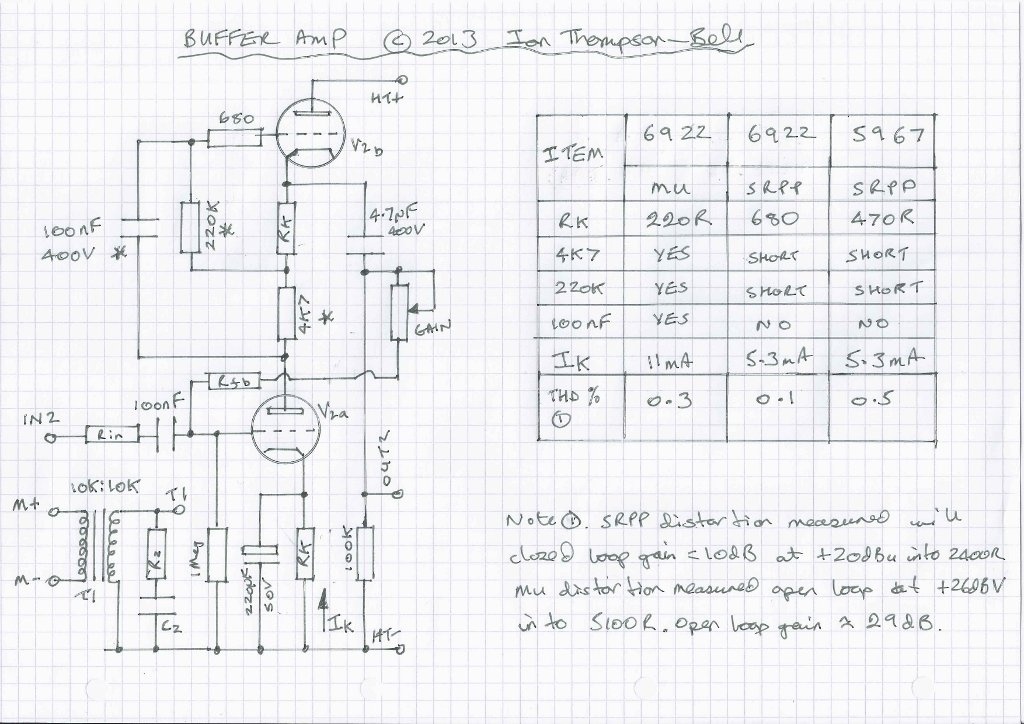 BUFFER AMP © 2013 Ian Thompson-Bell
HT+
680
V2b
100nF
400V *
220K *
RK
4.7µF
400V
4K7 *
GAIN
Rfb
100nF
V2a
IN2
Rin
OUT2
10K:10K
T1
M+
M-
T1
Rz
Cz
1Meg
220µF
50V
RK
IK
100K
HT-
ITEM 6922 6922 5967
MU SRPP SRPP
RK 220R 680 470R
4K7 YES SHORT SHORT
220K YES SHORT SHORT
100nF YES NO NO
IK 11mA 5.3mA 5.3mA
THD % ① 0.3 0.1 0.5
Note ①. SRPP distortion measured with
closed loop gain = 10dB at +20dBu into 2400R
Mu distortion measured open loop at +26dBV
in to 5100R. Open loop gain ≈ 29dB.